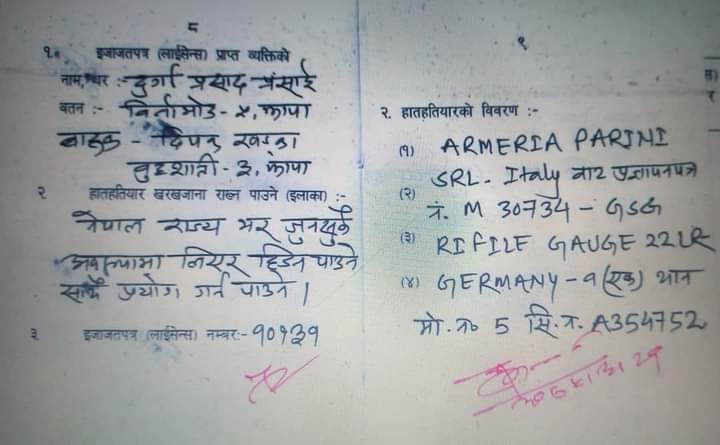 ८
१. इजाजतपत्र (लाईसेन्स) प्राप्त व्यक्तिको
नाम, थर :- दुर्गा प्रसाद प्रसाई
वतन :- विर्तामोड - ५, झापा
वाहक - दिपक खड्का
बुद्धशान्ती - ३, झापा
२ हातहतियार खरखजाना राख्न पाउने (इलाका) :-
नेपाल राज्य भर जुनसुकै
अवस्थामा लिएर हिडन पाउने
साथै प्रयोग गर्न पाउने ।
३ इजाजतपत्र (लाईसेन्स) नम्बर:- १०१३१
९
२. हातहतियारको विवरण :-
(१) ARMERIA PARINI
SRL - Italy बाट प्रज्ञापनपत्र
(२) नं. M 30734 - GSG
(३) RIFILE GAUGE 22LR
(४) GERMANY - १ (एक) थान
मो. नं० 5 सि. नं. A354752